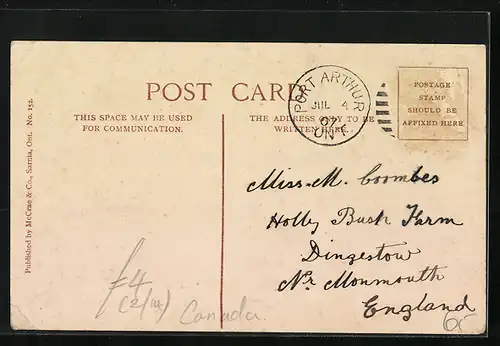 POST CARD
THIS SPACE MAY BE USED
FOR COMMUNICATION.
THE ADDRESS ONLY TO BE
WRITTEN HERE.
PORT ARTHUR
JUL 4
07
ONT
POSTAGE
STAMP
SHOULD BE
AFFIXED HERE
Published by McCrae & Co., Sarnia, Ont. No. 152.
Miss. M. Coombes
Holly Bush Farm
Dingestow
Nr. Monmouth
England
£4
Canada